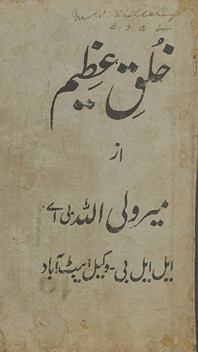 خُلقِ عظیم
از
میر ولی اللہ بی اے
ایل ایل بی - وکیل ایبٹ آباد